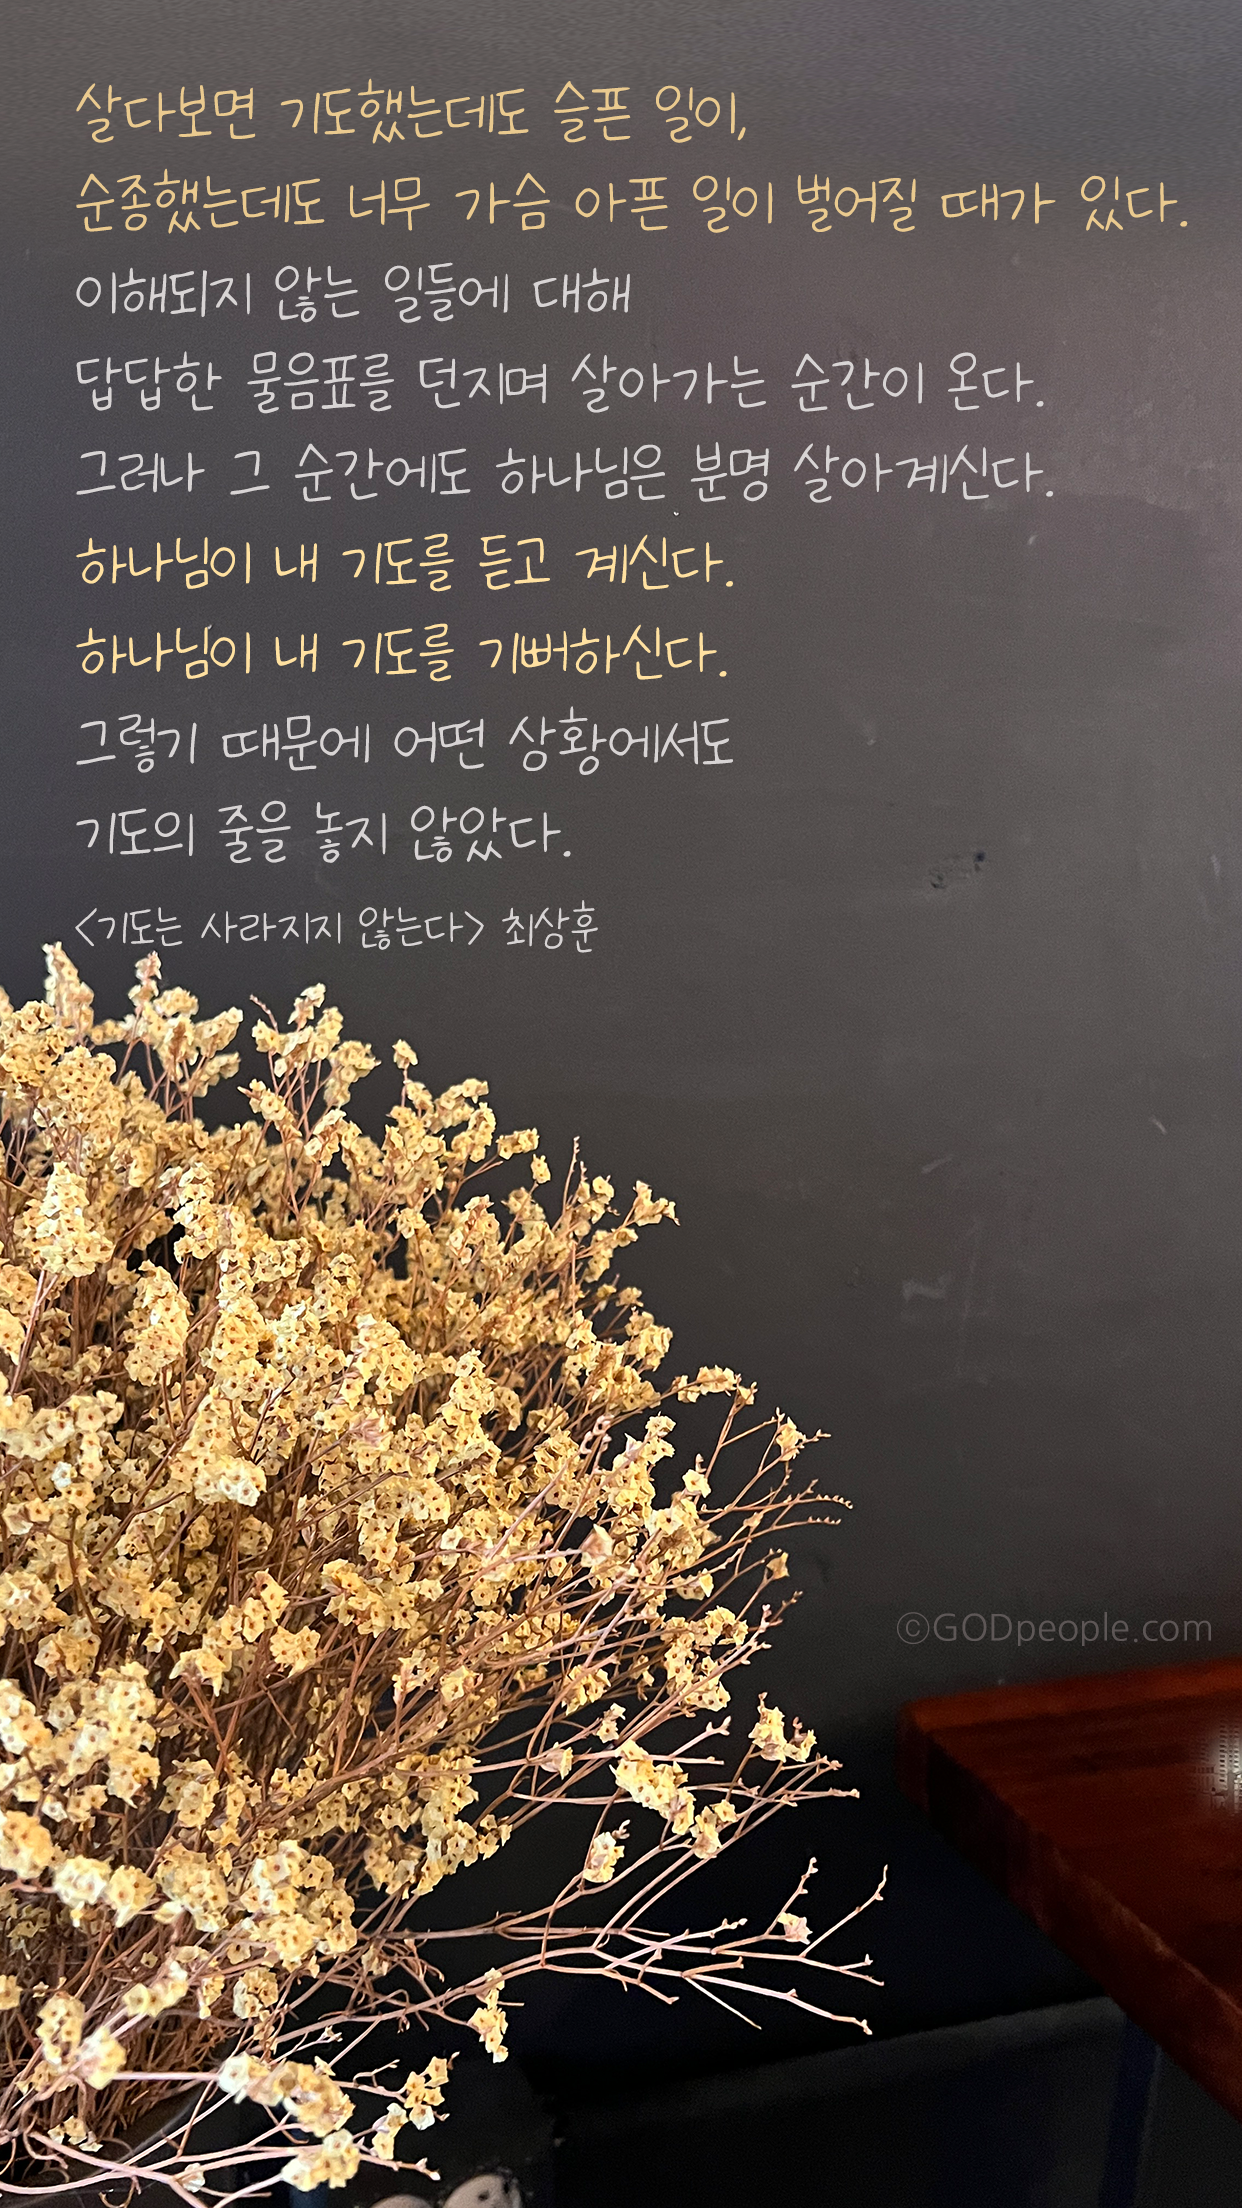 살다보면 기도했는데도 슬픈 일이,
순종했는데도 너무 가슴 아픈 일이 벌어질 때가 있다.
이해되지 않는 일들에 대해
답답한 물음표를 던지며 살아가는 순간이 온다.
그러나 그 순간에도 하나님은 분명 살아계신다.
하나님이 내 기도를 듣고 계신다.
하나님이 내 기도를 기뻐하신다.
그렇기 때문에 어떤 상황에서도
기도의 줄을 놓지 않았다.
<기도는 사라지지 않는다> 최상훈
©GODpeople.com